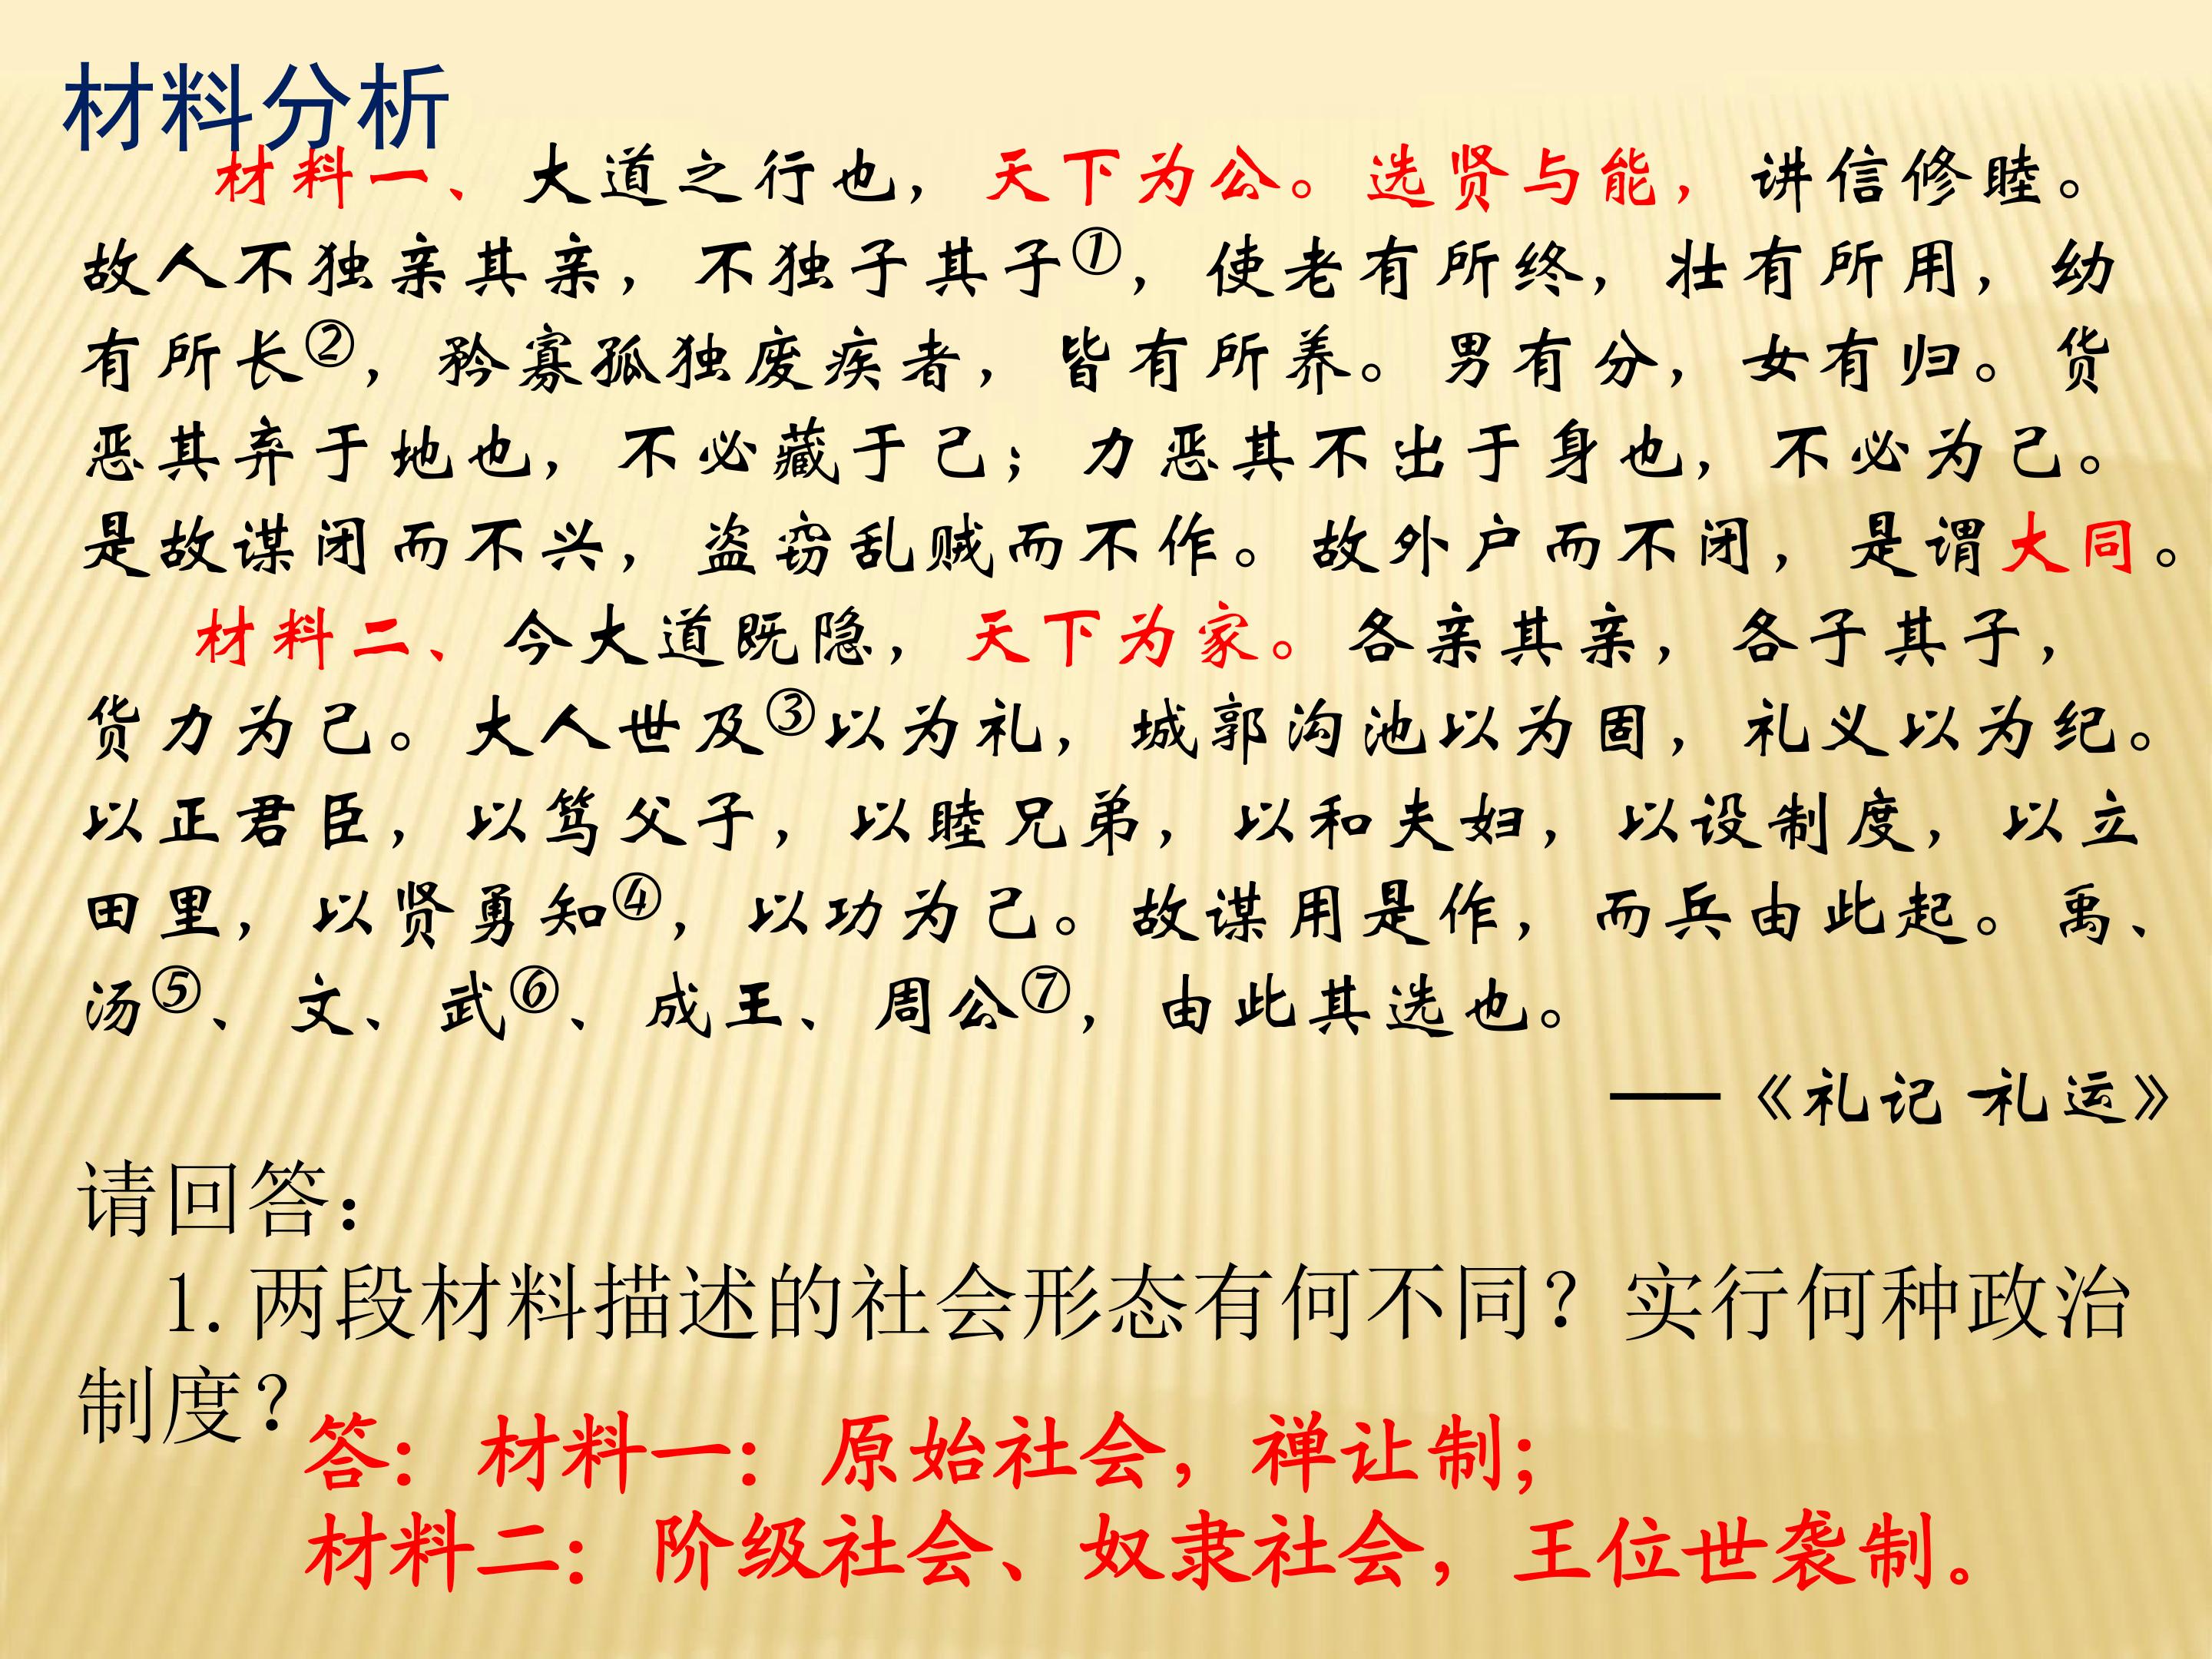 材料分析
材料一、大道之行也，天下为公。选贤与能，讲信修睦。
故人不独亲其亲，不独子其子①，使老有所终，壮有所用，幼
有所长②，矜寡孤独废疾者，皆有所养。男有分，女有归。货
恶其弃于地也，不必藏于己；力恶其不出于身也，不必为己。
是故谋闭而不兴，盗窃乱贼而不作。故外户而不闭，是谓大同。
材料二、今大道既隐，天下为家。各亲其亲，各子其子，
货力为己。大人世及③以为礼，城郭沟池以为固，礼义以为纪。
以正君臣，以笃父子，以睦兄弟，以和夫妇，以设制度，以立
田里，以贤勇知④，以功为己。故谋用是作，而兵由此起。禹、
汤⑤、文、武⑥、成王、周公⑦，由此其选也。
——《礼记-礼运》
请回答：
1.两段材料描述的社会形态有何不同？实行何种政治
制度？
答：材料一：原始社会，禅让制；
材料二：阶级社会、奴隶社会，王位世袭制。